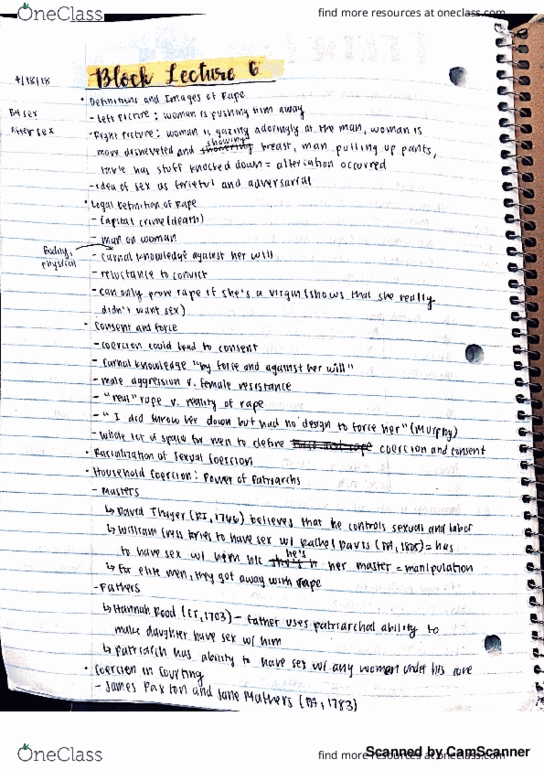 OneClass
find more resources at oneclass.com
4/18/18
Block Lecture 6
• Definitions and Images of Rape
- Left Picture: woman is pushing him away
Bef sex
After sex
- Right Picture: woman is gazing adoringly at the man, woman is
more disheveled and showing breast, man pulling up pants,
table has stuff knocked down = altercation occurred
- idea of sex as forceful and adversarial
• Legal Definition of Rape
- Capital crime (death)
- man on woman
Bodily,
physical
- carnal knowledge against her will
- reluctance to convict
- can only prove rape if she's a virgin (shows that she really
didn't want sex)
• Consent and Force
- coercion could lead to consent
- Carnal knowledge "by force and against her will"
- male aggression v. female resistance
- "real" rape v. reality of rape
- "I did throw her down but had no design to force her" (Murphy)
- Whole lot of space for men to define coercion and consent
• Racialization of Sexual Coercion
• Household Coercion: Power of Patriarchs
- Masters
↳ David Thayer (RI, 1746) believes that he controls sexual and labor
↳ William Cress tries to have sex w/ Rachel Davis (PA, 1805) = has
to have sex w/ him b/c he's her master = manipulation
↳ for elite men, they got away with rape
- Fathers
↳ Hannah Rood (CT, 1703) - father uses patriarchal ability to
make daughter have sex w/ him
↳ patriarch has ability to have sex w/ any woman under his care
• Coercion in Courting
- James Paxton and Jane Mathers (PA, 1783)
OneClass
find more resources at oneclass.com
Scanned by CamScanner